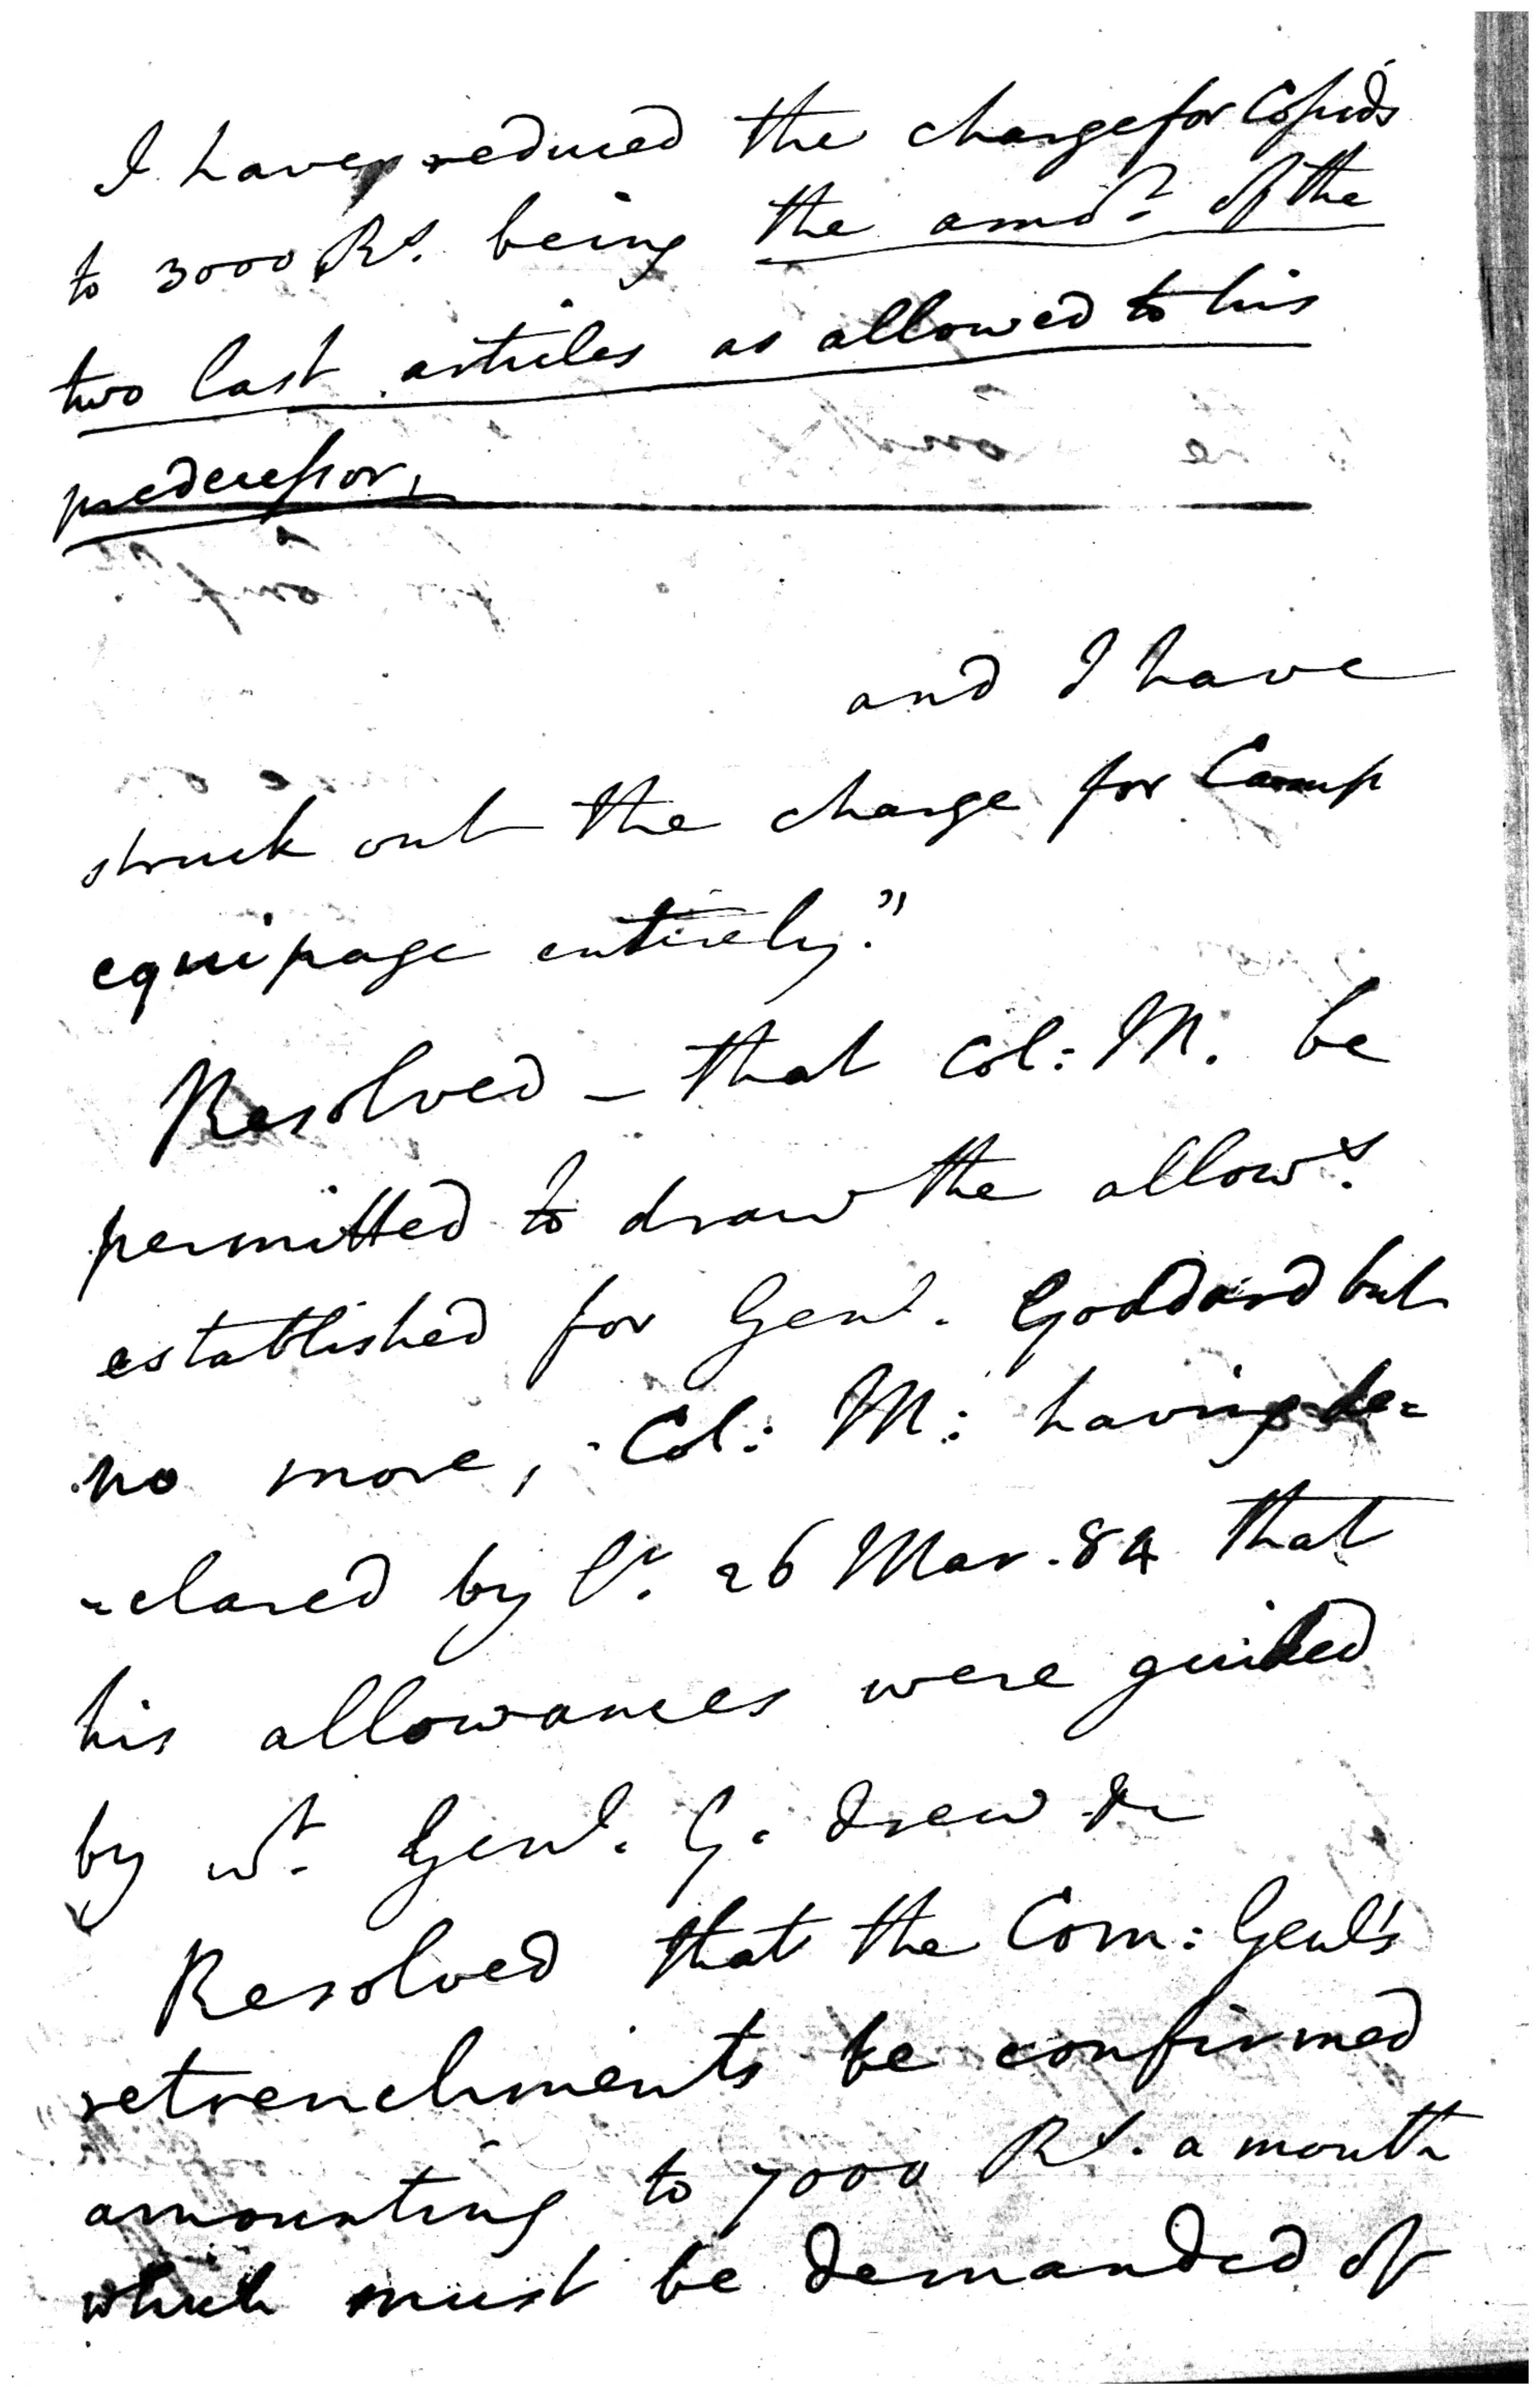 I have reduced the charge for Cossids
to 3000 Rs. being the amot. of the
two last articles as allowed to his
predecessor,
and I have
struck out the charge for Camp
equipage entirely."
Resolved - that Col: M. be
permitted to draw the allowes.
established for Genl. Goddard but
no more, Col: M: having de=
=clared by lr. 26 Mar. 84 that
his allowances were guided
by wt. Genl. G. drew &c
Resolved that the Com: Genl's
retrenchments be confirmed
amounting to 7000 Rs. a month
which must be demanded of